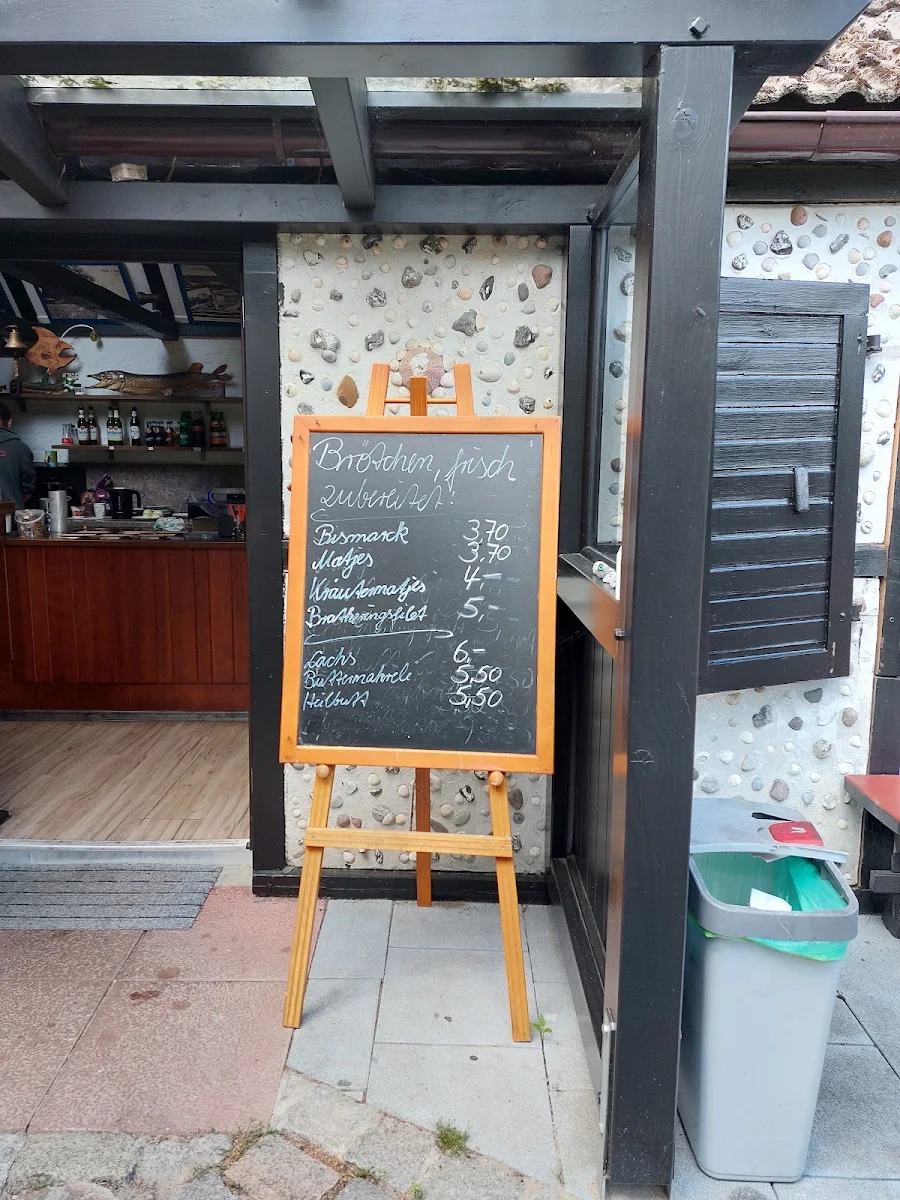 Brötchen, frisch
zubereitet!
Bismarck 3,70
Matjes 3,70
Kräutermatjes 4,-
Bratheringsfilet 5,-
Lachs 6,-
Buttermakrele 5,50
Heilbutt 5,50